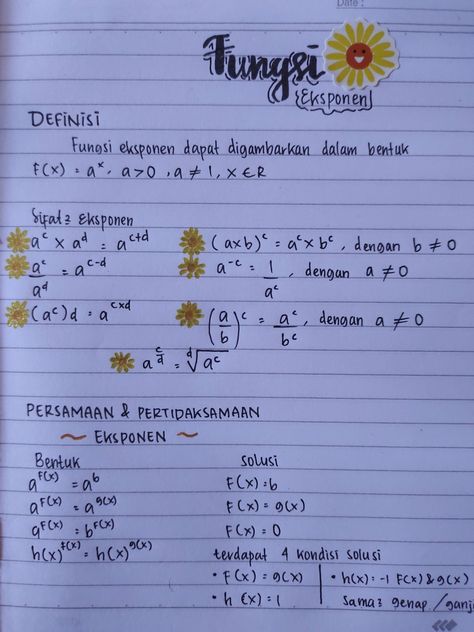 Date :
Fungsi
{Eksponen}
DEFINISI
Fungsi eksponen dapat digambarkan dalam bentuk
F(x) = aˣ, a>0 , a ≠ 1, x ∈ R
Sifat² Eksponen
a^c x a^d = a^(c+d)
(axb)^c = a^c x b^c, dengan b ≠ 0
a^c/a^d = a^(c-d)
a^(-c) = 1/a^c, dengan a ≠ 0
(a^c)d = a^(cxd)
(a/b)^c = a^c/b^c, dengan a ≠ 0
a^(c/d) = ᵈ√a^c
PERSAMAAN & PERTIDAKSAMAAN
~ EKSPONEN ~
Bentuk
Solusi
a^F(x) = a^b
F(x) = b
a^F(x) = a^g(x)
F(x) = g(x)
a^F(x) = b^F(x)
F(x) = 0
h(x)^f(x) = h(x)^g(x)
terdapat 4 kondisi solusi
• F(x) = g(x)
• h(x) = -1 F(x) & g(x)
• h (x) = 1
sama² genap / ganj